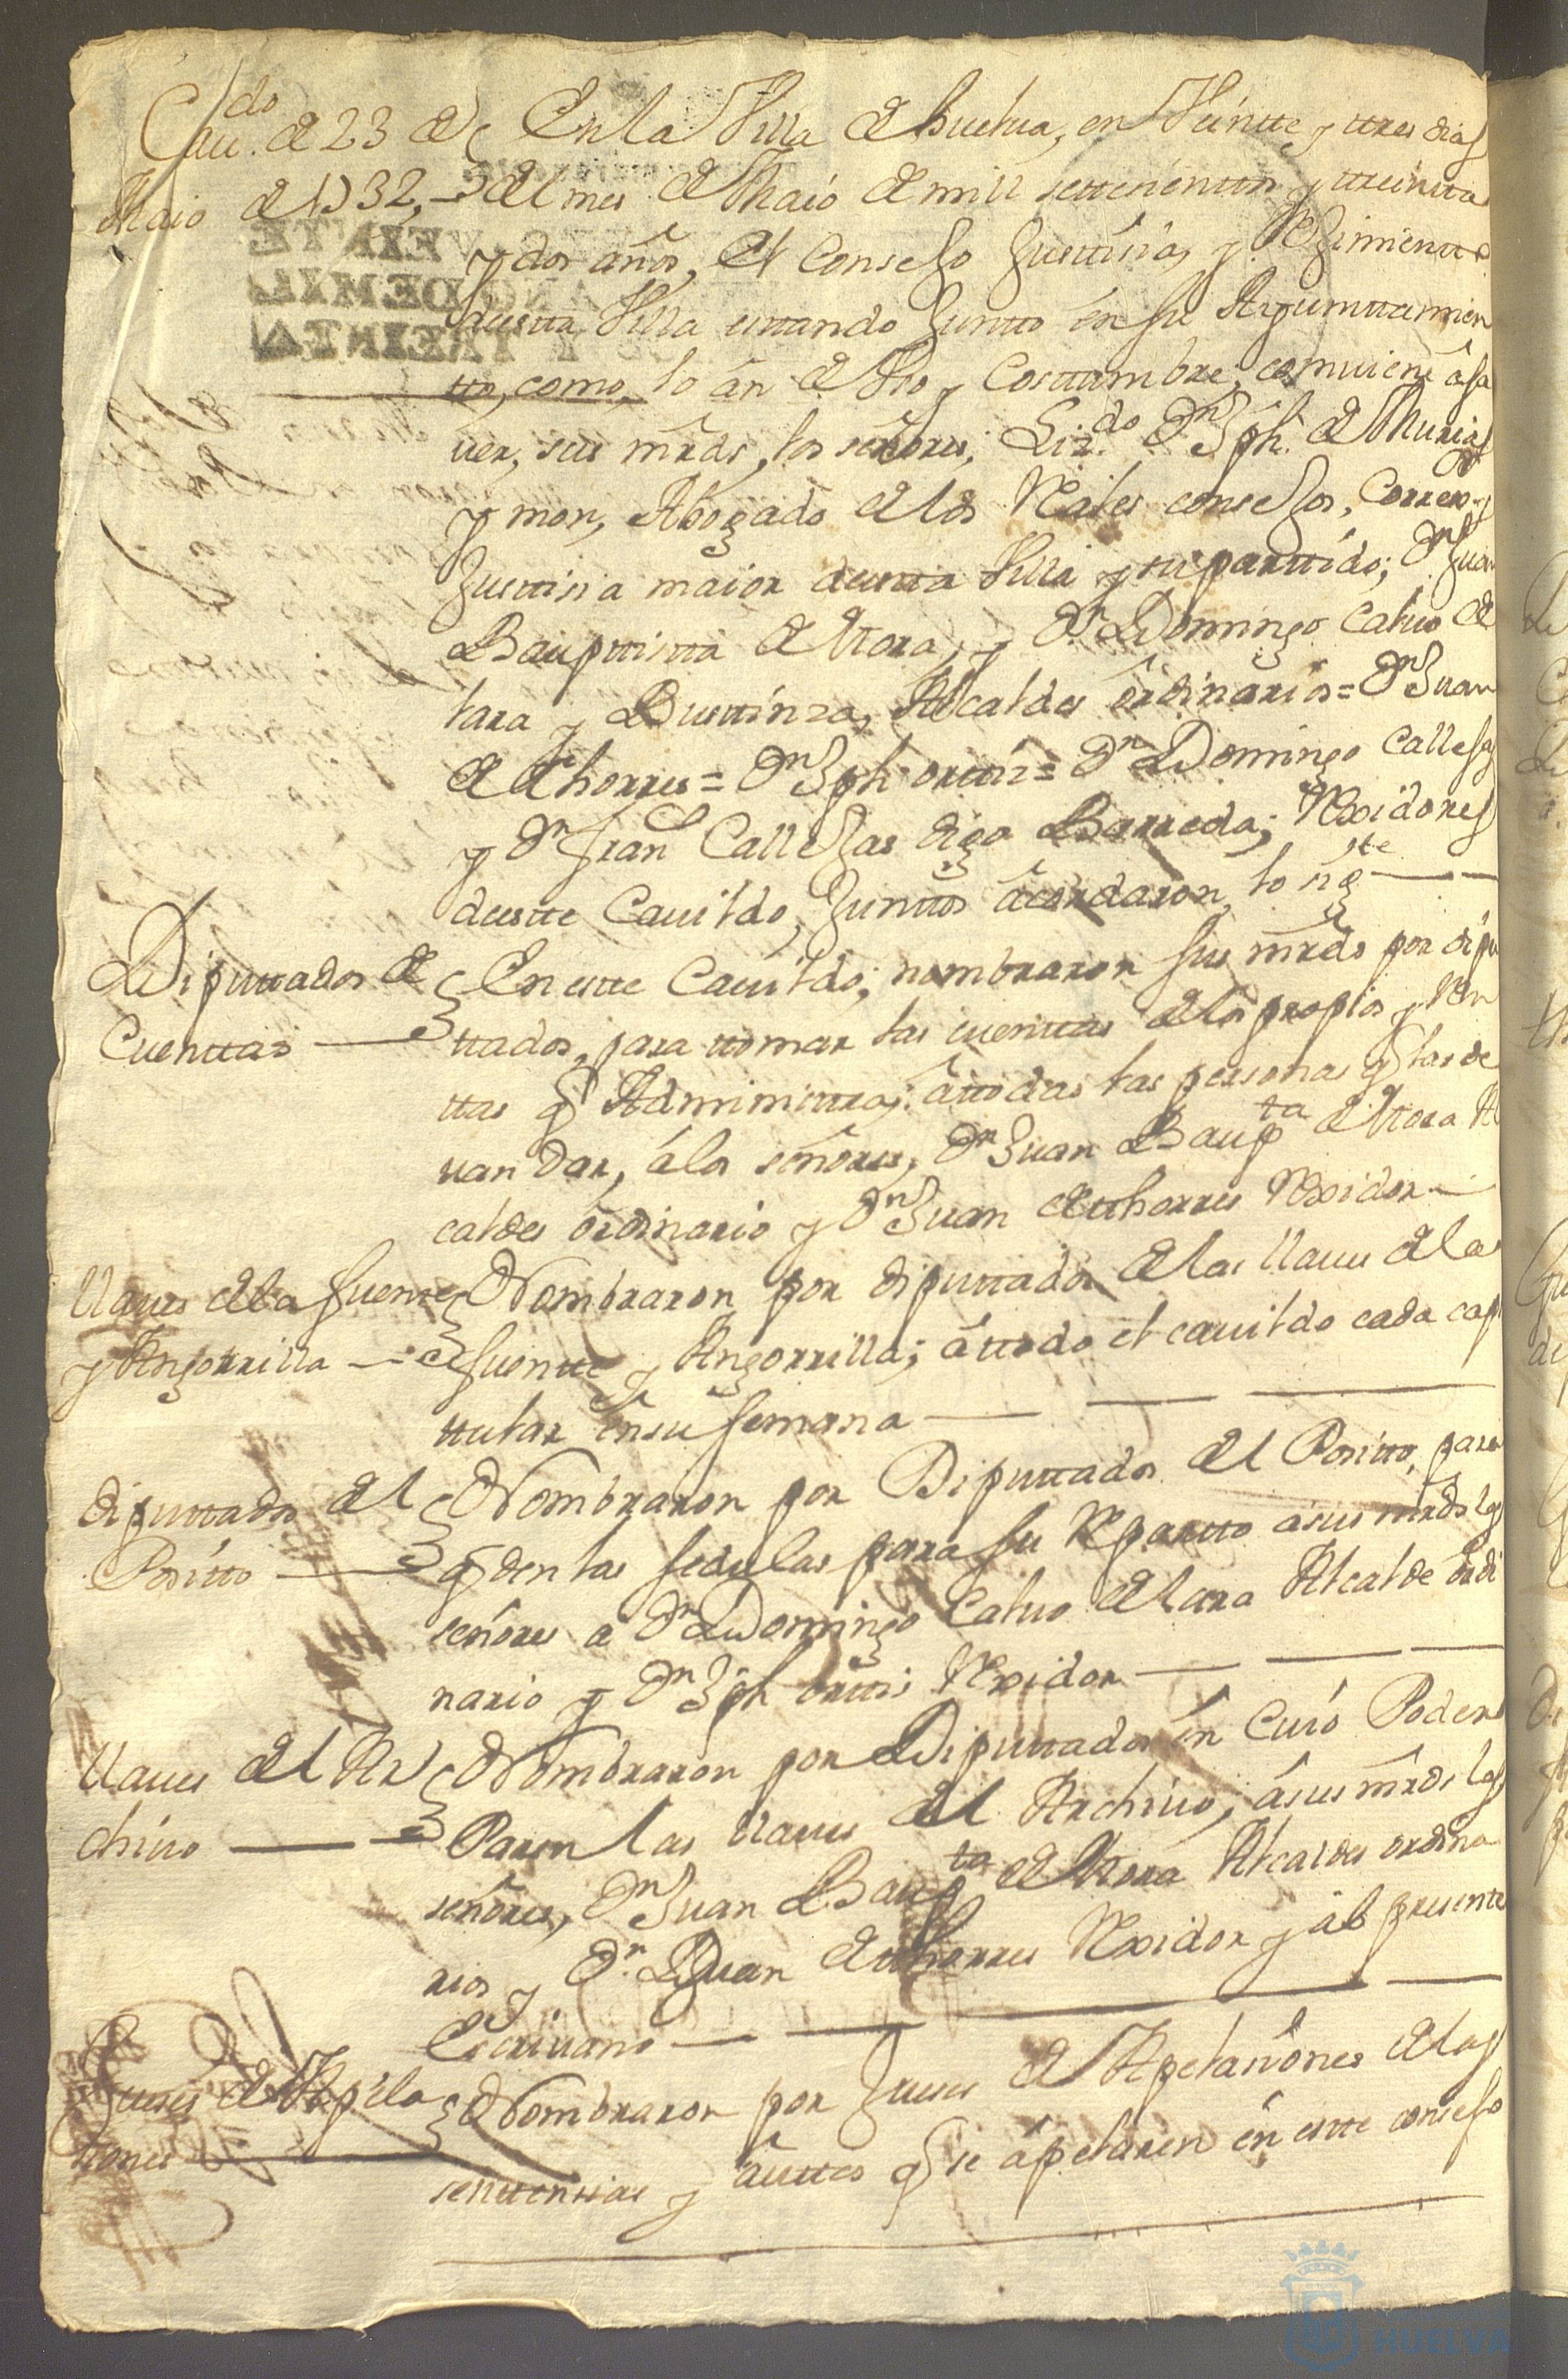 Cau.do de 23 de
Maio de 1732,
En la Villa de Huelua, en Veintte y ttres dias
del mes de Maio de mill settecienttos y ttreintta
y dos años, el Consejo Justticia, y Reximientto
deestta Villa esttando Juntto en su Ayunttamien
tto, como, lo án de Vso y Costtumbre, comuiene á sa
uer, sus mrds, los señores, Liz.do Dn Jph. de Murias
y mon, Abogado de los Rales consejos, Correx.or y
Justtisia maior deestta Villa y su parttído; Dn Juan
Baupttistta de Mora, y Dn Domingo Caluo de
lara y Busttinza, Alcaldes ordinarios = Dn Juan
de thorres = Dn Jph orttiz = Dn Domingo Callejas
y Dn Fran.co Callejas digo Barreda; Rexidores
deestte Cauildo, Junttos acordaron, lo sigte
Diputtados de
Cuenttas
En estte Cauildo; nombraron sus mrds por dipu
ttados, para ttomar las cuenttas de los propios y Ren
ttas q Administtra; á ttodas las personas q las de
uan dar, á los señores, Dn Juan Baupta de Mora Al
caldes ordinario y Dn Juan de tthorres Rexidor
llaues de la fuente
y Angorrilla
Nombraron por diputtados de las llaues de la
fuentte y Angorrilla; á ttodo el cauildo cada capi
ttular en su semana
diputtados del
Positto
Nombraron por Diputtados del Positto, para
q den las sedulas para su Repartto a sus mrds los
señores a Dn Domingo Caluo de lara Alcalde ordi
nario y Dn Jph orttiz Rexidor
llaues del Ar
chiuo
Nombraron por Diputtados en Cuio Poder
Paren las llaues del Archiuo; á sus mrds los
señores, Dn Juan Baupta de Mora Alcaldes ordina
rios y Dn Juan de tthorres Rexidor y al presente
Escriuano
Jueses de Apela
siones
Nombraron por Jueses de Apelasiónes de las
senttensias y áuttos q se ápelaren en estte consejo
VEINTE
DEMIL
Y TREINTA
HUELVA